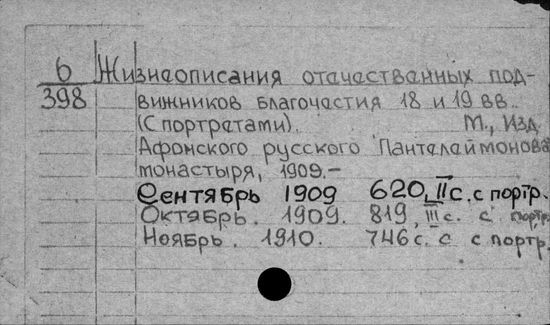 6 Жизнеописания отечественных под-
398 вижников благочестия 18 и 19 вв.
(С портретами). М., Изд.
Афонского русского Пантелеймонова
монастыря, 1909.-
Сентябрь 1909 620, II с. с портр.
Октябрь. 1909. 819, III с. с портр.
Ноябрь. 1910. 746 с. с с портр.